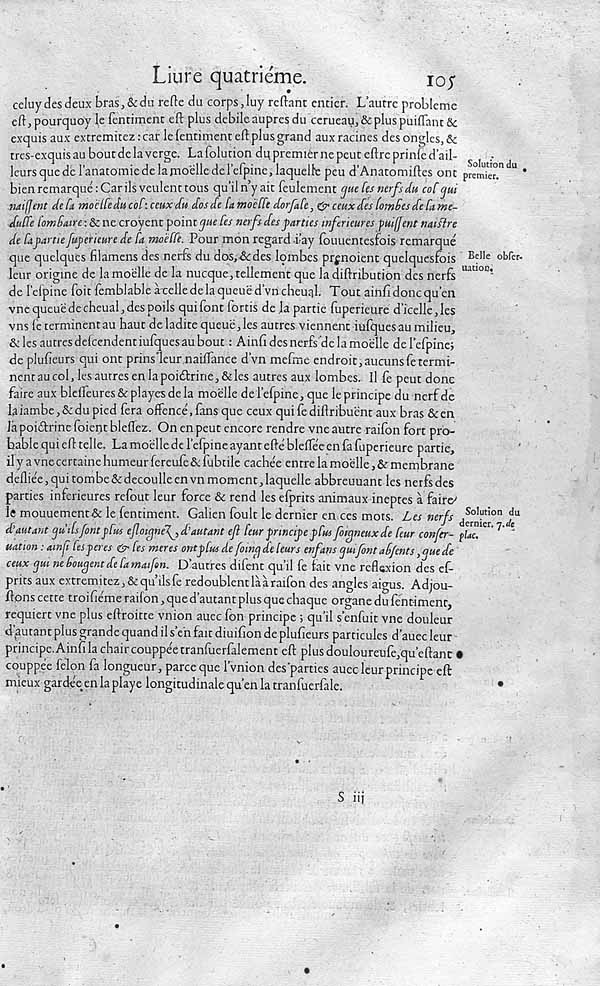 Liure quatriéme. 105
celuy des deux bras, & du reſte du corps, luy reſtant entier. L'autre probleme
eſt, pourquoy le ſentiment eſt plus debile aupres du cerueau, & plus puiſſant &
exquis aux extremitez: car le ſentiment eſt plus grand aux racines des ongles, &
tres-exquis au bout de la verge. La ſolution du premier ne peut eſtre prinſe d'ail-
leurs que de l'anatomie de la moëlle de l'eſpine, laquelle peu d'Anatomiſtes ont
Solution du
premier.
bien remarqué: Car ils veulent tous qu'il n'y ait ſeulement que les nerfs du col qui
naiſſent de la moëlle du col: ceux du dos de la moëlle dorſale, & ceux des lombes de la me-
dulle lombaire: & ne croyent point que les nerfs des parties inferieures puiſſent naiſtre
de la partie ſuperieure de la moëlle. Pour mon regard i'ay ſouuentesfois remarqué
que quelques filamens des nerfs du dos, & des lombes prenoient quelquesfois
Belle obſer-
uation.
leur origine de la moëlle de la nucque, tellement que la diſtribution des nerfs
de l'eſpine ſoit ſemblable à celle de la queuë d'vn cheual. Tout ainſi donc qu'en
vne queuë de cheual, des poils qui ſont ſortis de la partie ſuperieure d'icelle, les
vns ſe terminent au haut de ladite queuë, les autres viennent iuſques au milieu,
& les autres deſcendent iuſques au bout: Ainſi des nerfs de la moëlle de l'eſpine;
de pluſieurs qui ont prins leur naiſſance d'vn meſme endroit, aucuns ſe termi-
nent au col, les autres en la poictrine, & les autres aux lombes. Il ſe peut donc
faire aux bleſſeures & playes de la moëlle de l'eſpine, que le principe du nerf de
la iambe, & du pied ſera offencé, ſans que ceux qui ſe diſtribuënt aux bras & en
la poictrine ſoient bleſſez. On en peut encore rendre vne autre raiſon fort pro-
bable qui eſt telle. La moëlle de l'eſpine ayant eſté bleſſée en ſa ſuperieure partie,
il y a vne certaine humeur ſereuſe & ſubtile cachée entre la moëlle, & membrane
deſliée, qui tombe & decoulle en vn moment, laquelle abbreuuant les nerfs des
parties inferieures reſout leur force & rend les eſprits animaux ineptes à faire
le mouuement & le ſentiment. Galien ſoult le dernier en ces mots. Les nerfs
Solution du
dernier. 7. de
plac.
d'autant qu'ils ſont plus eſloignez, d'autant eſt leur principe plus ſoigneux de leur conſer-
uation: ainſi les peres & les meres ont plus de ſoing de leurs enfans qui ſont abſents, que de
ceux qui ne bougent de la maiſon. D'autres diſent qu'il ſe fait vne reflexion des eſ-
prits aux extremitez, & qu'ils ſe redoublent là à raiſon des angles aigus. Adjou-
ſtons cette troiſiéme raiſon, que d'autant plus que chaque organe du ſentiment,
requiert vne plus eſtroitte vnion auec ſon principe; qu'il s'enſuit vne douleur
d'autant plus grande quand il s'en fait diuiſion de pluſieurs particules d'auec leur
principe. Ainſi la chair couppée tranſuerſalement eſt plus douloureuſe, qu'eſtant
couppée ſelon ſa longueur, parce que l'vnion des parties auec leur principe eſt
mieux gardée en la playe longitudinale qu'en la tranſuerſale.
S iij